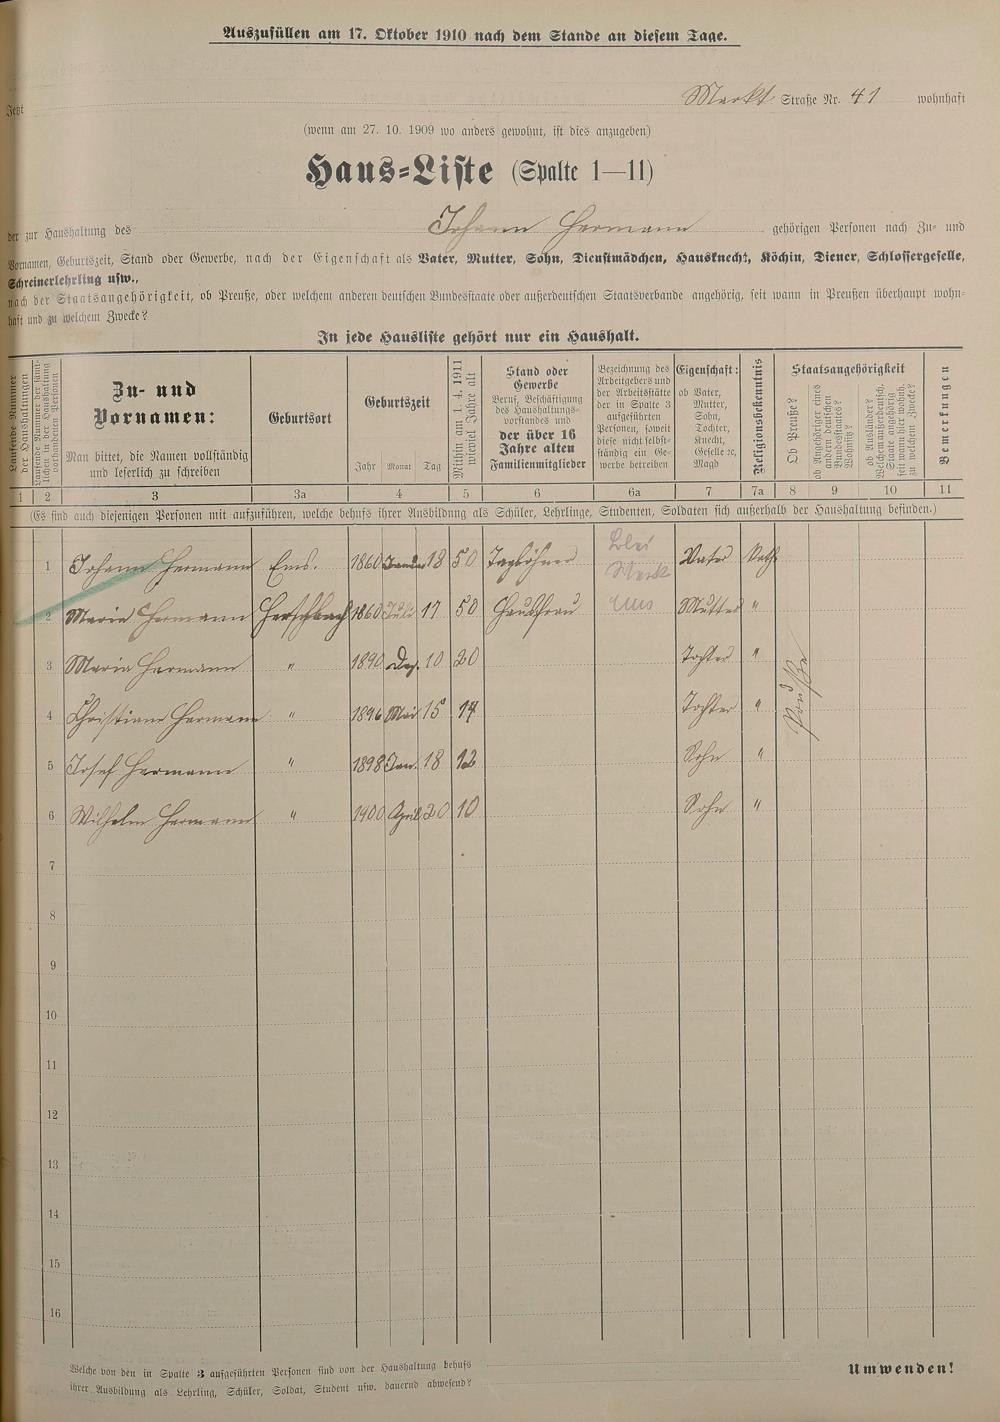 Auszufüllen am 17. Oktober 1910 nach dem Stande an diesem Tage.
Jetzt Markt Straße Nr. 41 wohnhaft
(wenn am 27. 10. 1909 wo anders gewohnt, ist dies anzugeben)
Haus-Liste (Spalte 1—11)
der zur Haushaltung des Johann Hermann gehörigen Personen nach Zu- und
Vornamen, Geburtszeit, Stand oder Gewerbe, nach der Eigenschaft als Vater, Mutter, Sohn, Dienstmädchen, Hausknecht, Köchin, Diener, Schlossergeselle,
Schreinerlehrling usw.,
nach der Staatsangehörigkeit, ob Preuße, oder welchem anderen deutschen Bundesstaate oder außerdeutschen Staatsverbande angehörig, seit wann in Preußen überhaupt wohn-
haft und zu welchem Zwecke?
In jede Hausliste gehört nur ein Haushalt.
Laufende Nummer der Haushaltungen
Laufende Nummer der sämt-
lichen in der Haushaltung
vorhandenen Personen
Zu- und
Vornamen:
Man bittet, die Namen vollständig
und leserlich zu schreiben
Geburtsort
Geburtszeit
Jahr Monat Tag
Mithin am 1. 4. 1911
wieviel Jahre alt
Stand oder
Gewerbe
Beruf, Beschäftigung
des Haushaltungs-
vorstandes und
der über 16
Jahre alten
Familienmitglieder
Bezeichnung des
Arbeitgebers und
der Arbeitsstätte
der in Spalte 3
aufgeführten
Personen, soweit
diese nicht selbst-
ständig ein Ge-
werbe betreiben
Eigenschaft:
ob Vater,
Mutter,
Sohn,
Tochter,
Knecht,
Geselle ec,
Magd
Religionsbekenntnis
Staatsangehörigkeit
Ob Preuße?
ob Angehöriger eines
andern deutschen
Bundesstaates?
Wohnsitz?
ob Ausländer?
Welchem außerdeutsch.
Staate angehörig
seit wann hier wohnh.
zu welchem Zwecke?
Bemerkungen
1 2 3 3a 4 5 6 6a 7 7a 8 9 10 11
(Es sind auch diejenigen Personen mit aufzuführen, welche behufs ihrer Ausbildung als Schüler, Lehrlinge, Studenten, Soldaten sich außerhalb der Haushaltung befinden.)
1 Johann Hermann Ems. 1860 Januar 18 50 Taglöhner Blei Werk Vater Kath.
2 Maria Hermann Herschbach 1860 Juli 17 50 Hausfrau Ems Mutter "
3 Maria Hermann " 1890 Dez. 10 20 Tochter "
4 Christiane Hermann " 1896 Mai 15 14 Tochter "
5 Josef Hermann " 1898 Jan. 18 12 Sohn "
6 Wilhelm Hermann " 1900 April 20 10 Sohn "
Preuße
7
8
9
10
11
12
13
14
15
16
Welche von den in Spalte 3 aufgeführten Personen sind von der Haushaltung behufs
ihrer Ausbildung als Lehrling, Schüler, Soldat, Student usw. dauernd abwesend?
Umwenden!